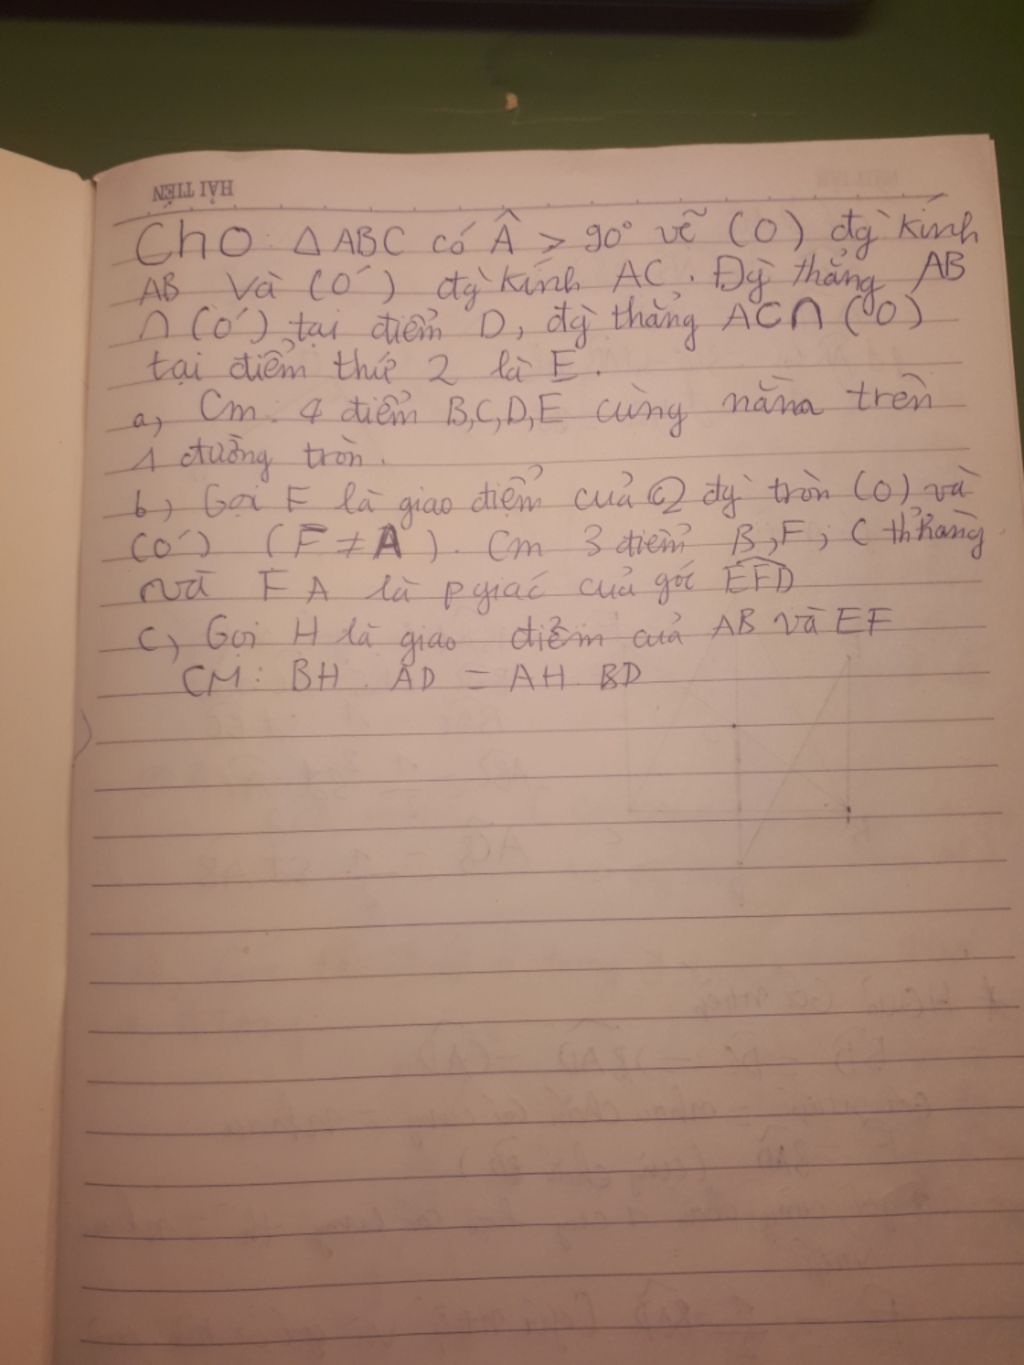 HẢI TIẾN
Cho △ABC có Â > 90° vẽ (O) đg̀ kính
AB và (O') đg̀ kính AC. Đg̀ thẳng AB
∩ (O') tại điểm D, đg̀ thẳng AC∩(O)
tại điểm thứ 2 là E.
a, Cm: 4 điểm B,C,D,E cùng nằm trên
1 đường tròn.
b, Gọi F là giao điểm của 2 đg̀ tròn (O) và
(O') (F ≠ A). Cm 3 điểm B,F, C thẳng
và FA là pgiác của góc EFD
c, Gọi H là giao điểm của AB và EF
CM: BH . AD = AH . BD